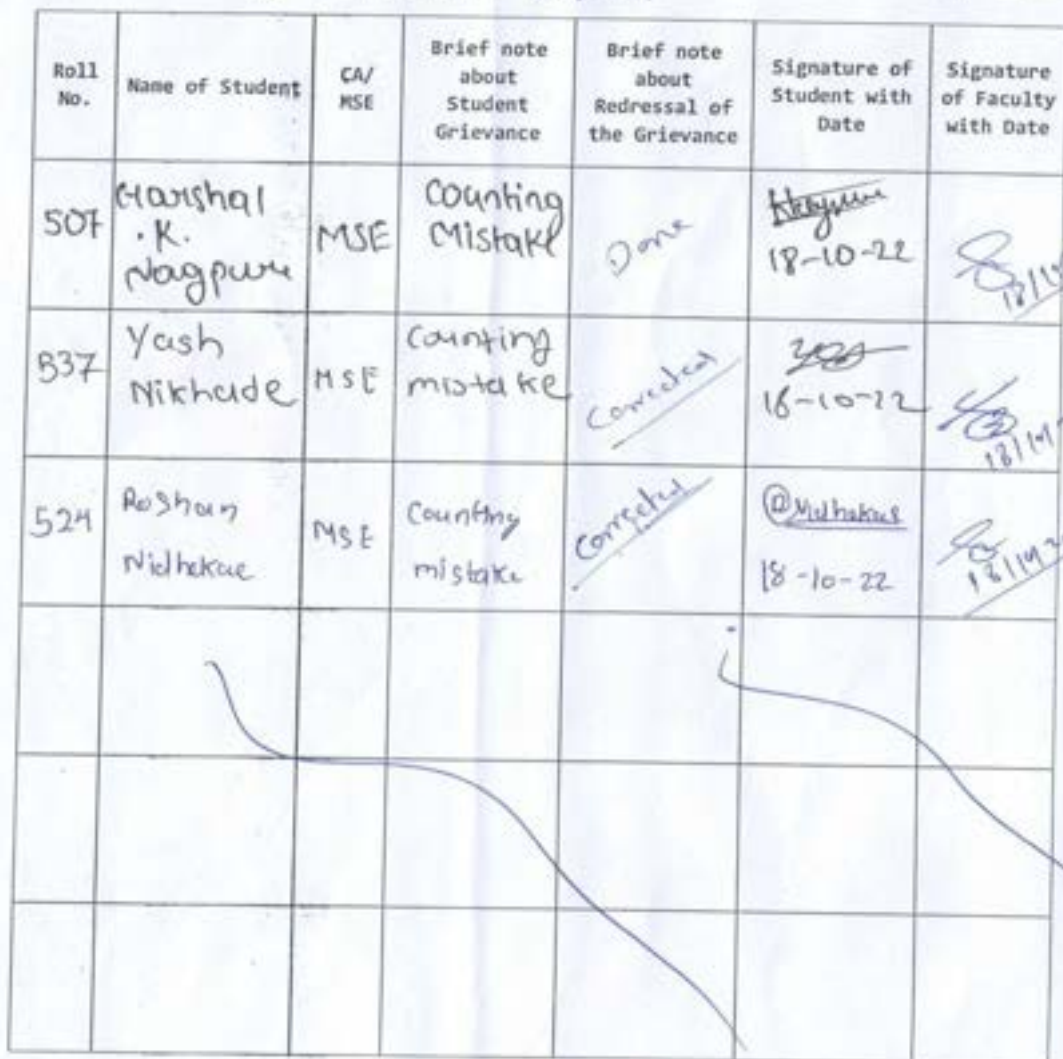 Roll No.
Name of Student
CA/ MSE
Brief note about Student Grievance
Brief note about Redressal of the Grievance
Signature of Student with Date
Signature of Faculty with Date
507
Harshal
.K.
Nagpure
MSE
Counting
Mistake
Done
18-10-22
537
Yash
Nikhade
MSE
Counting
mistake
Corrected
18-10-22
524
Roshan
Nidhekar
MSE
Counting
mistake
Corrected
18-10-22